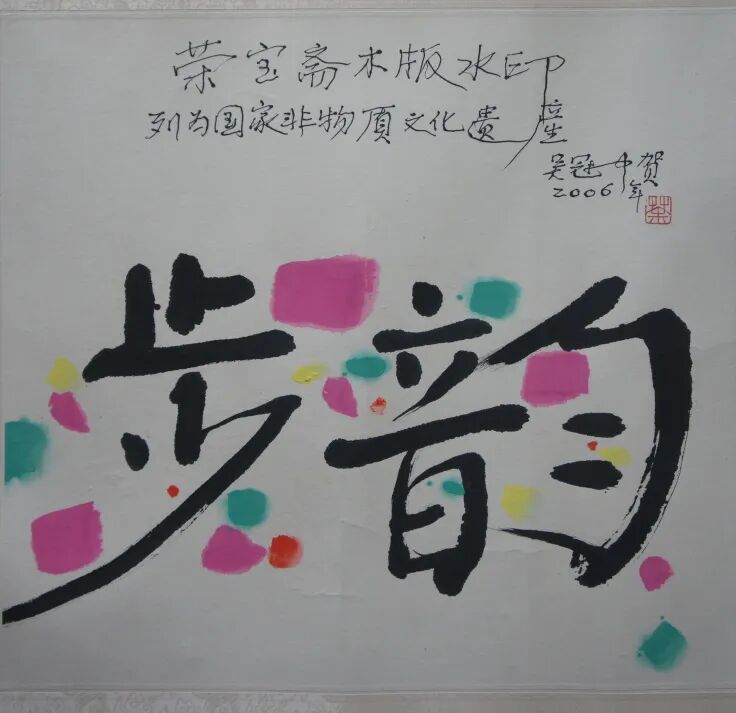 荣宝斋木版水印
列为国家非物质文化遗产
吴冠中贺
2006年
荼
步韵